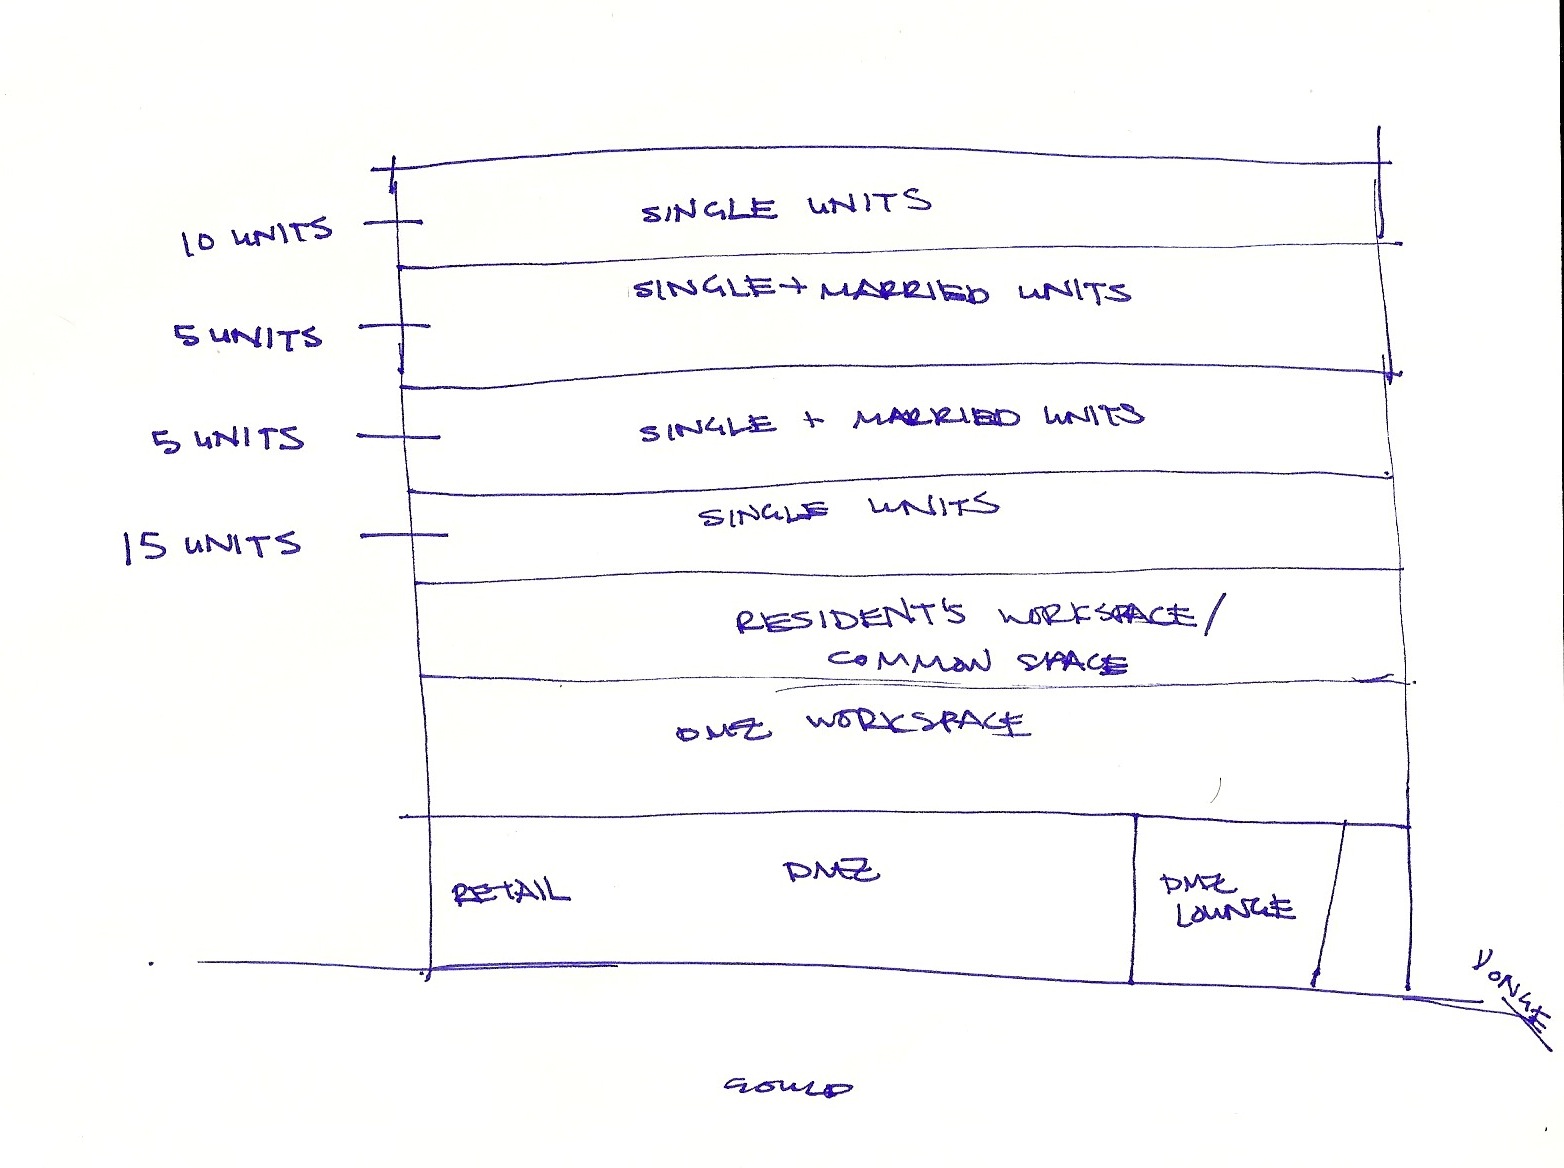 SINGLE UNITS
10 UNITS
SINGLE + MARRIED UNITS
5 UNITS
SINGLE + MARRIED UNITS
5 UNITS
SINGLE UNITS
15 UNITS
RESIDENT'S WORKSPACE/
COMMON SPACE
DMZ WORKSPACE
RETAIL
DMZ
DMZ
LOUNGE
YONGE
GOULD